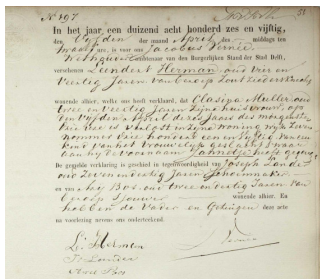 No 197
51
In het jaar een duizend acht honderd zes en vijftig,
den Vijfden der maand April des middags ten
twaalf ure, is voor ons Jacobus Pernée
Ambtenaar van den Burgerlijken Stand der Stad Delft,
verschenen Leendert Herman, oud vier en
veertig Jaren van beroep
wonende alhier, welke ons heeft verklaard, dat Clasina Muller oud
twee en veertig Jaren zijne huisvrouw, op
den Vijfden April dezes Jaars des morgens ten
drie ure is verlost in zijne woning wijk Zeven
nommer drie honderd een en vijftig van een
kind van het vrouwelijk geslacht waar
aan hij de voornaam Jannetje heeft gegeven
De gezegde verklaring is geschied in tegenwoordigheid van Joseph Lander
oud Zeven en dertig Jaren Schoenmaker
en van Arij Bos, oud twee en dertig Jaren van
beroep wonende alhier. En
hebben de Vader en Getuigen deze acte
na voorlezing nevens ons onderteekend.
L. Herman
Js Lander
Arie Bos